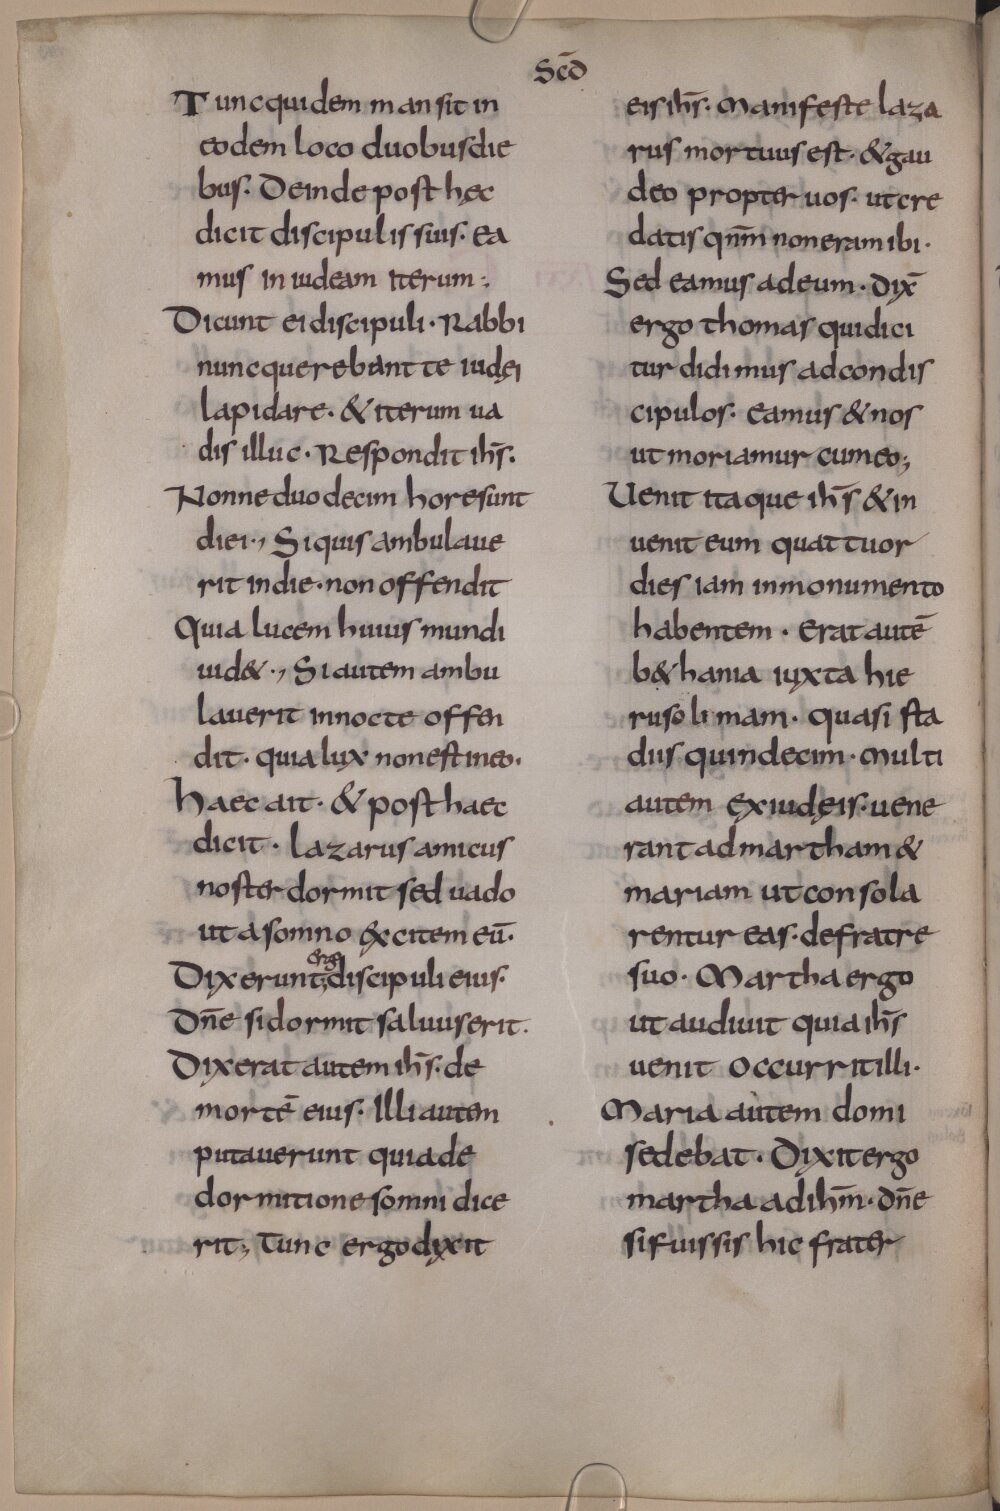 Sc̄d
Tunc quidem mansit in
eodem loco duobus die
bus. Deinde post hęc
dicit discipulis suis. Ea
mus in iudeam iterum:
Dicunt ei discipuli. Rabbi
nunc querebant te iudęi
lapidare. & iterum ua
dis illuc. Respondit ih̄s.
Nonne duodecim horę sunt
diei., Si quis ambulaue
rit in die. non offendit
Quia lucem huius mundi
uid&., Si autem ambu
lauerit in nocte offen
dit. quia lux non est in eo.
Haec ait. & post haec
dicit. Lazarus amicus
noster dormit sed uado
ut a somno excitem eū.
ergo
Dixerunt; discipuli eius.
Dn̄e si dormit saluus erit.
Dixerat autem ih̄s. de
mortē eius. Illi autem
putauerunt quia de
dormitione somni dice
rit; Tunc ergo dixit
eis ih̄s. Manifeste laza
rus mortuus est. & gau
deo propter uos. ut cre
datis qn̄m non eram ibi.
Sed eamus ad eum. Dix̄
ergo thomas qui dici
tur didimus ad condis
cipulos. Eamus & nos
ut moriamur cum eo;
Uenit itaque ih̄s & in
uenit eum quattuor
dies iam in monumento
habentem. Erat autē
b&hania iuxta hie
rusolimam. quasi sta
diis quindecim. Multi
autem ex iudęis. uene
rant ad martham &
mariam ut consola
rentur eas. de fratre
suo. Martha ergo
ut audiuit quia ih̄s
uenit occurrit illi.
Maria autem domi
sedebat. Dixit ergo
martha ad ih̄m. dn̄e
si fuissis hic frater